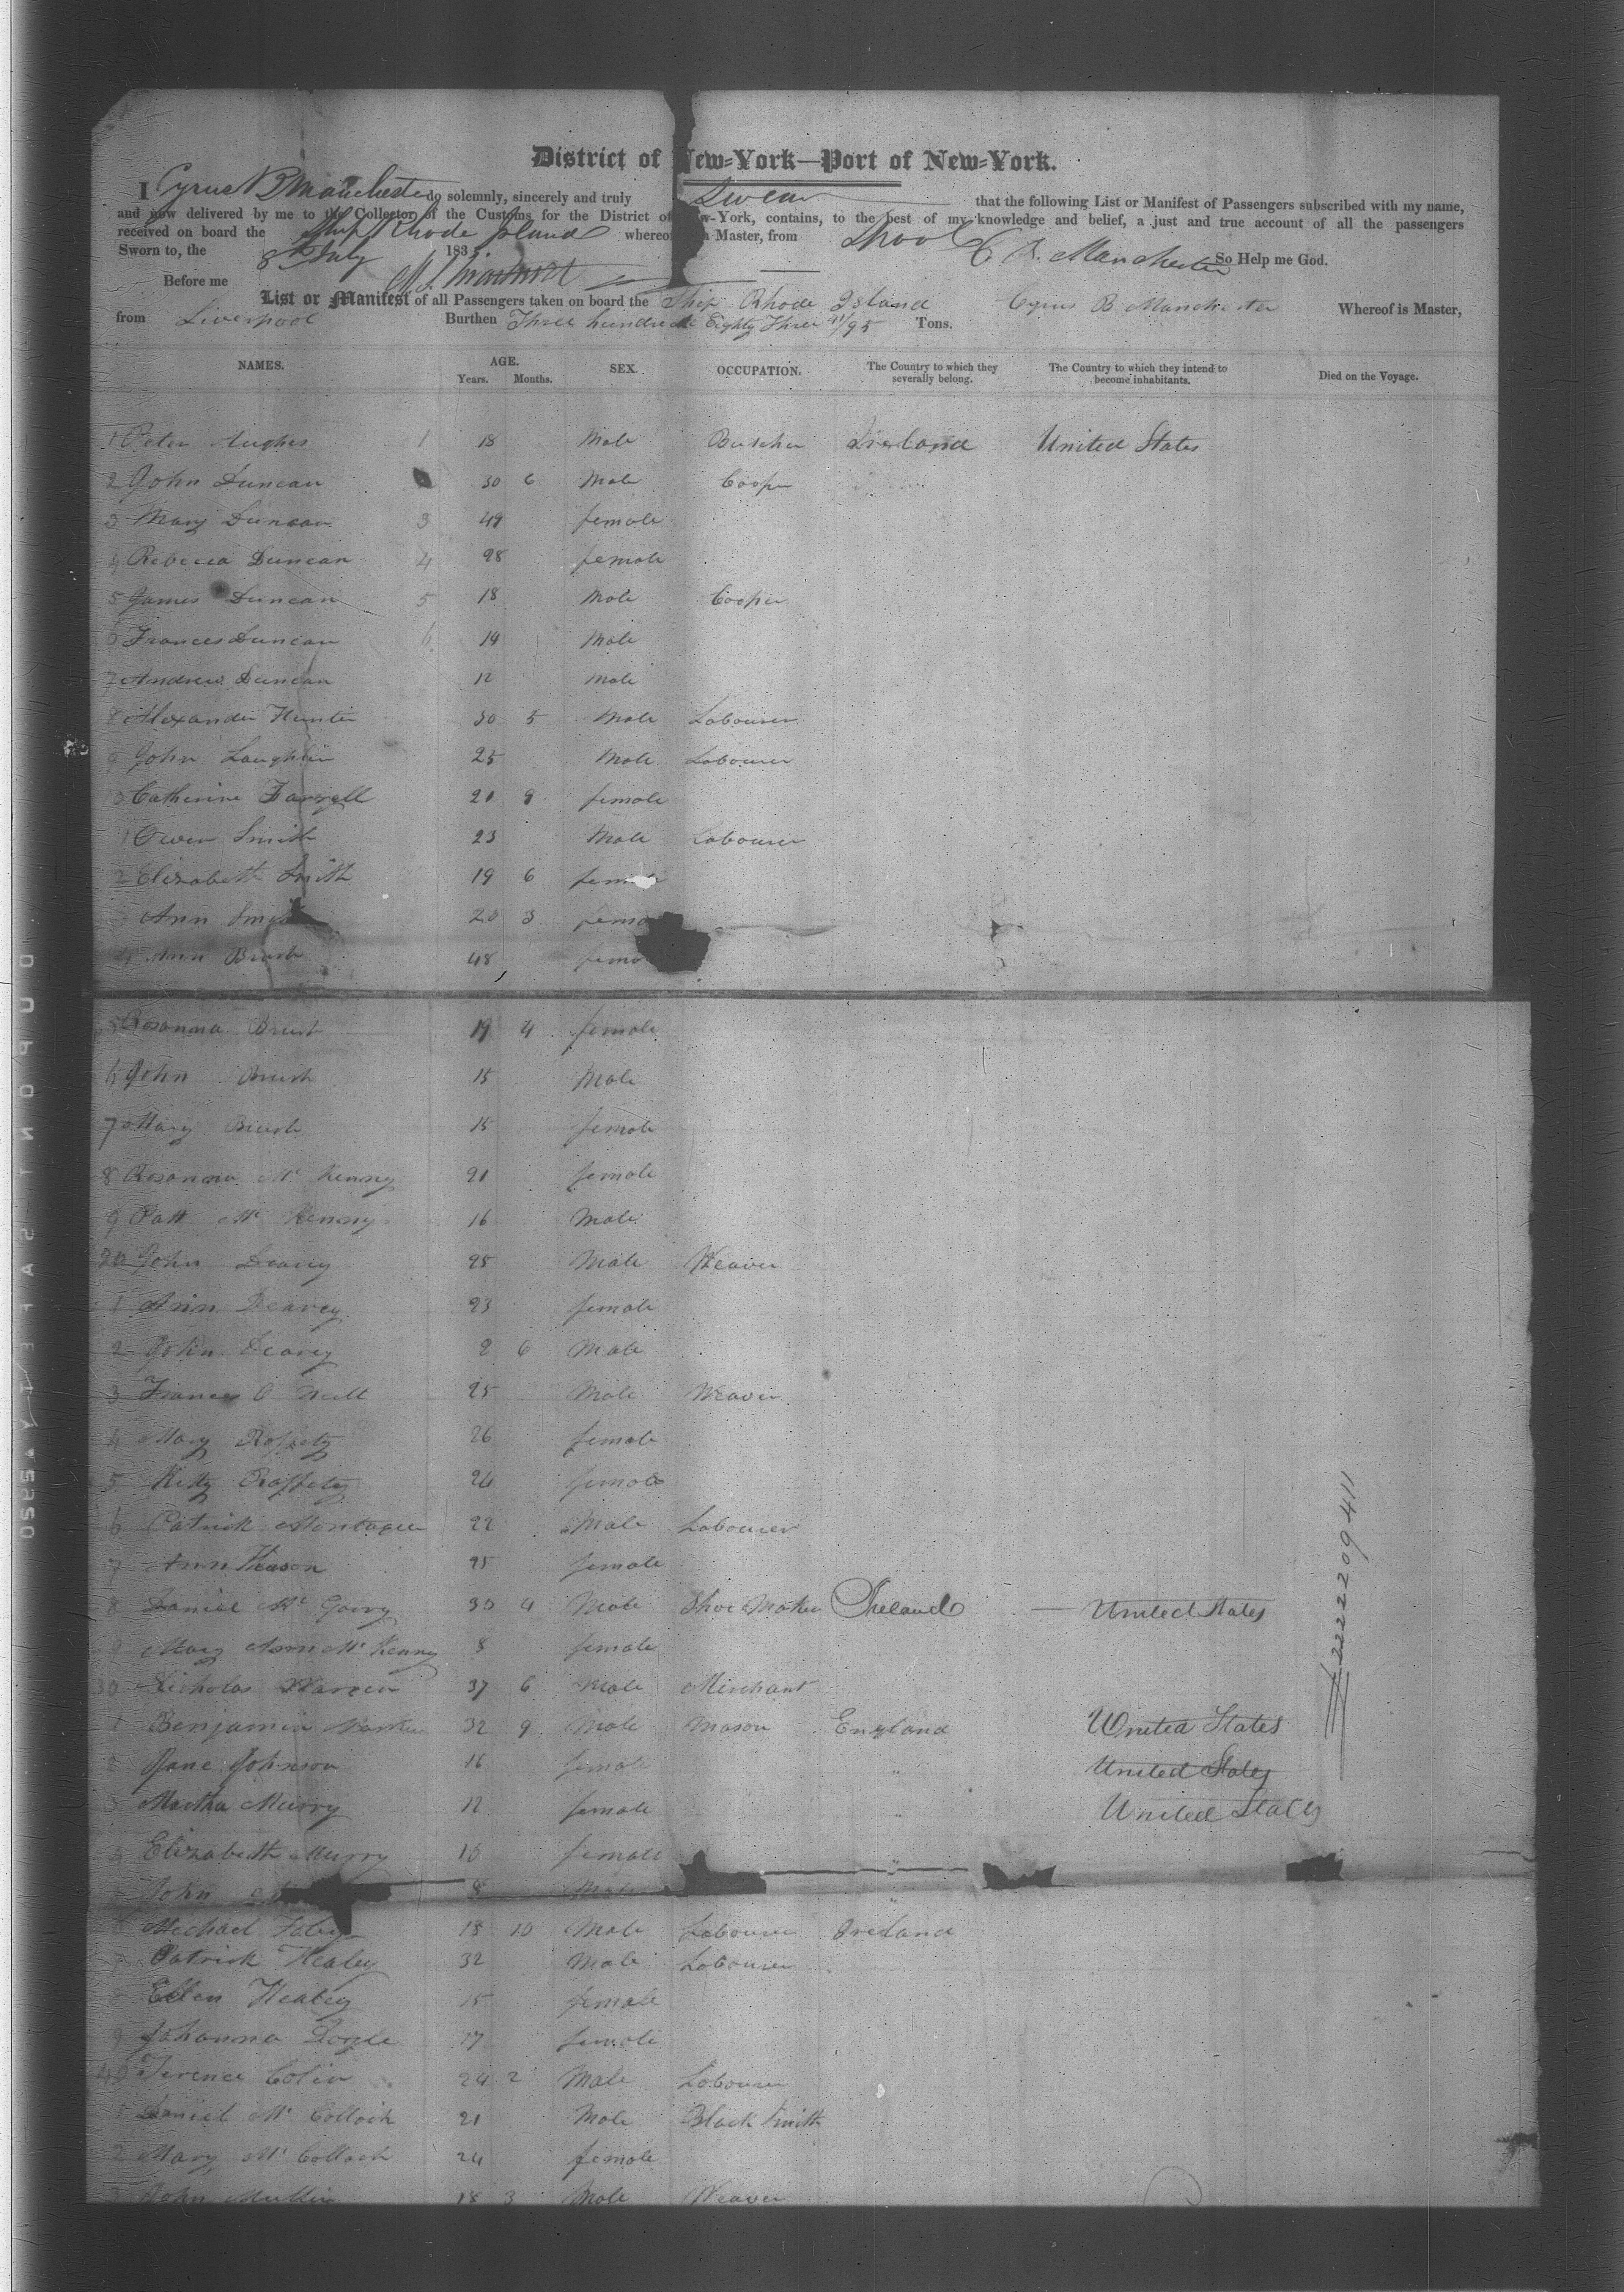 District of New-York—Port of New-York.
I Cyrus B Manchester do solemnly, sincerely and truly Swear that the following List or Manifest of Passengers subscribed with my name,
and now delivered by me to the Collector of the Customs for the District of New-York, contains, to the best of my knowledge and belief, a just and true account of all the passengers
received on board the Ship Rhode Island whereof Master, from Lpool
Sworn to, the 8th July 183 C B. Manchester So Help me God.
Before me
List or Manifest of all Passengers taken on board the Ship Rhode Island Cyrus B Manchester Whereof is Master,
from Liverpool Burthen Three hundred Eighty Three 41/95 Tons.
NAMES. AGE. SEX. OCCUPATION. The Country to which they severally belong. The Country to which they intend to become inhabitants. Died on the Voyage.
Years. Months.
1 Peter Hughes 1 18 Male Butcher Ireland United States
2 John Duncan 50 6 Male Cooper
3 Mary Duncan 3 49 female
4 Rebecca Duncan 4 28 female
5 James Duncan 5 18 Male Cooper
6 Frances Duncan 6 14 Male
7 Andrew Duncan 12 Male
8 Alexander Hunter 30 5 Male Labourer
9 John Laughlin 25 Male Labourer
10 Catherine Farrell 21 9 female
1 Owen Smith 23 Male Labourer
2 Elizabeth Smith 19 6 female
Ann Smith 20 3 female
4 Ann 48
5 Rosanna 19 4 female
6 John 15 Male
7 Mary 15 female
8 Rosanna Mc Kenny 21 female
9 Patt Mc Kenny 16 Male
20 John Deavey 25 Male Weaver
1 Ann Deavey 23 female
2 John Deavey 2 6 Male
3 Frances O Neill 25 Male Weaver
4 Mary Raffety 26 female
5 Kitty Raffety 24 female
6 Patrick Montague 22 Male Labourer
7 Ann 25 female
8 Daniel Mc Garry 30 4 Male Shoe Maker Ireland — United States
9 Mary Ann Mc Kenny 8 female
30 Nicholas Warren 37 6 Male Merchant
1 Benjamin 32 9 Male Mason England United States
2 Jane Johnson 16 female " United States
3 Martha Murry 12 female " United States
4 Elizabeth Murry 10 female "
5 John 8 Male "
Michael 18 10 Male Labourer Ireland
7 Patrick Healey 32 Male Labourer
Ellen Healey 15 female
9 Johanna Doyle 17 female
40 Terence Colin 24 2 Male Labourer
1 Daniel Mc Colloch 21 Male Black Smith
2 Mary Mc Colloch 24 female
3 John Mullin 18 3 Male Weaver
2222209411